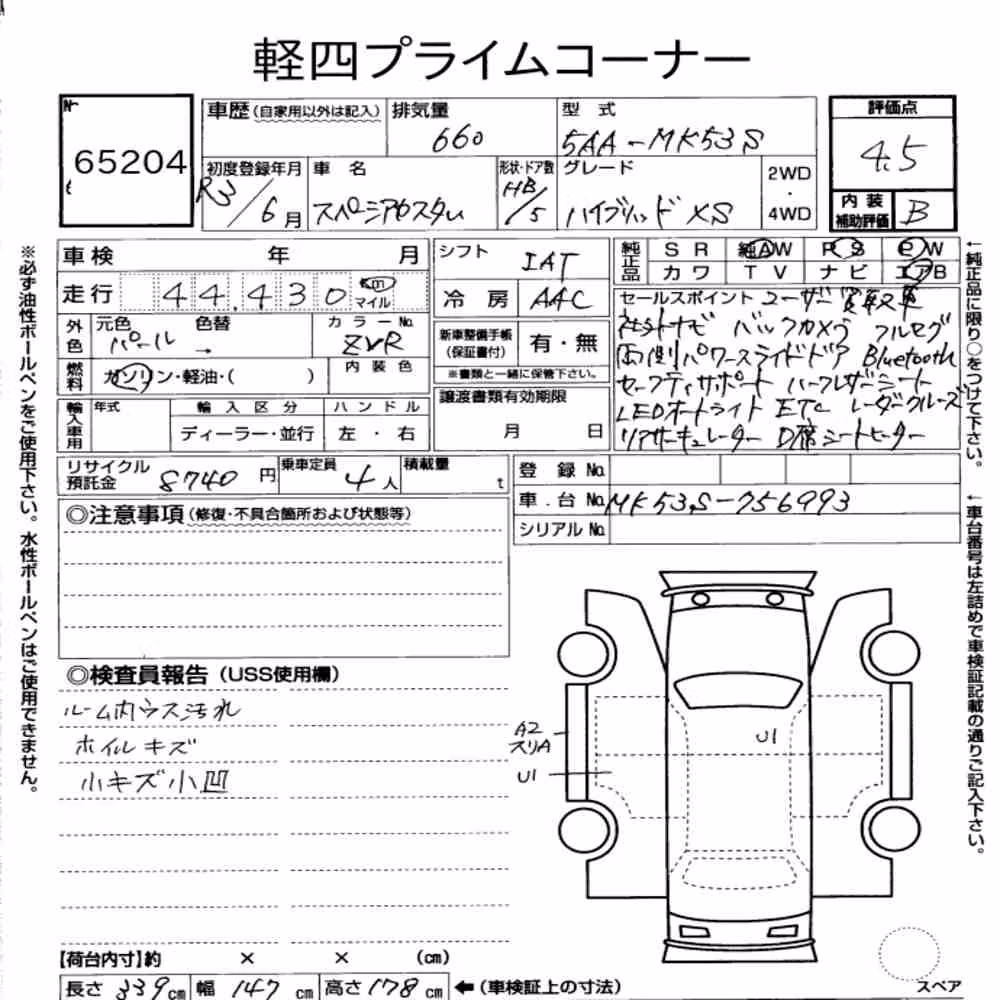 軽四プライムコーナー
№
65204
車歴 (自家用以外は記入) 排気量 型 式
660 5AA-MK53S
評価点
4.5
初度登録年月 車 名 形状・ドア数 グレード
R3/6月 スペーシアカスタム HB/5 ハイブリッド XS
2WD
・
4WD
内 装
補助評価 B
車検 年 月
走行 44,430 km マイル
シフト IAT
冷 房 AAC
純正品 SR 純AW PS PW
カワ TV ナビ エアB
外色 元色 色替 カラーNo.
パール → ZVR
燃料 ガソリン・軽油・( ) 内装色
新車整備手帳
(保証書付) 有・無
※書類と一緒に保管下さい。
輸入車用 年式 輸入区分 ハンドル
ディーラー・並行 左・右
譲渡書類有効期限
月 日
セールスポイント ユーザー買取車
社外ナビ バックカメラ フルセグ
両側パワースライドドア Bluetooth
セーフティサポート ハーフレザーシート
LEDオートライト ETC レーダークルーズ
リアサーキュレーター D席シートヒーター
リサイクル
預託金 8740円
乗車定員 4人
積載量 t
登 録 No.
車 台 No. MK53S-756993
シリアル No.
◎注意事項 (修復・不具合箇所および状態等)
◎検査員報告 (USS使用欄)
ルーム内ウス汚れ
ホイルキズ
小キズ小凹
A2
スリA
U1
U1
【荷台内寸】約 × × (cm)
長さ 339cm 幅 147cm 高さ 178cm ←(車検証上の寸法)
スペア
※必ず油性ボールペンをご使用下さい。水性ボールペンはご使用できません。
←純正品に限り○をつけて下さい。
←車台番号は左詰めで車検証記載の通りご記入下さい。